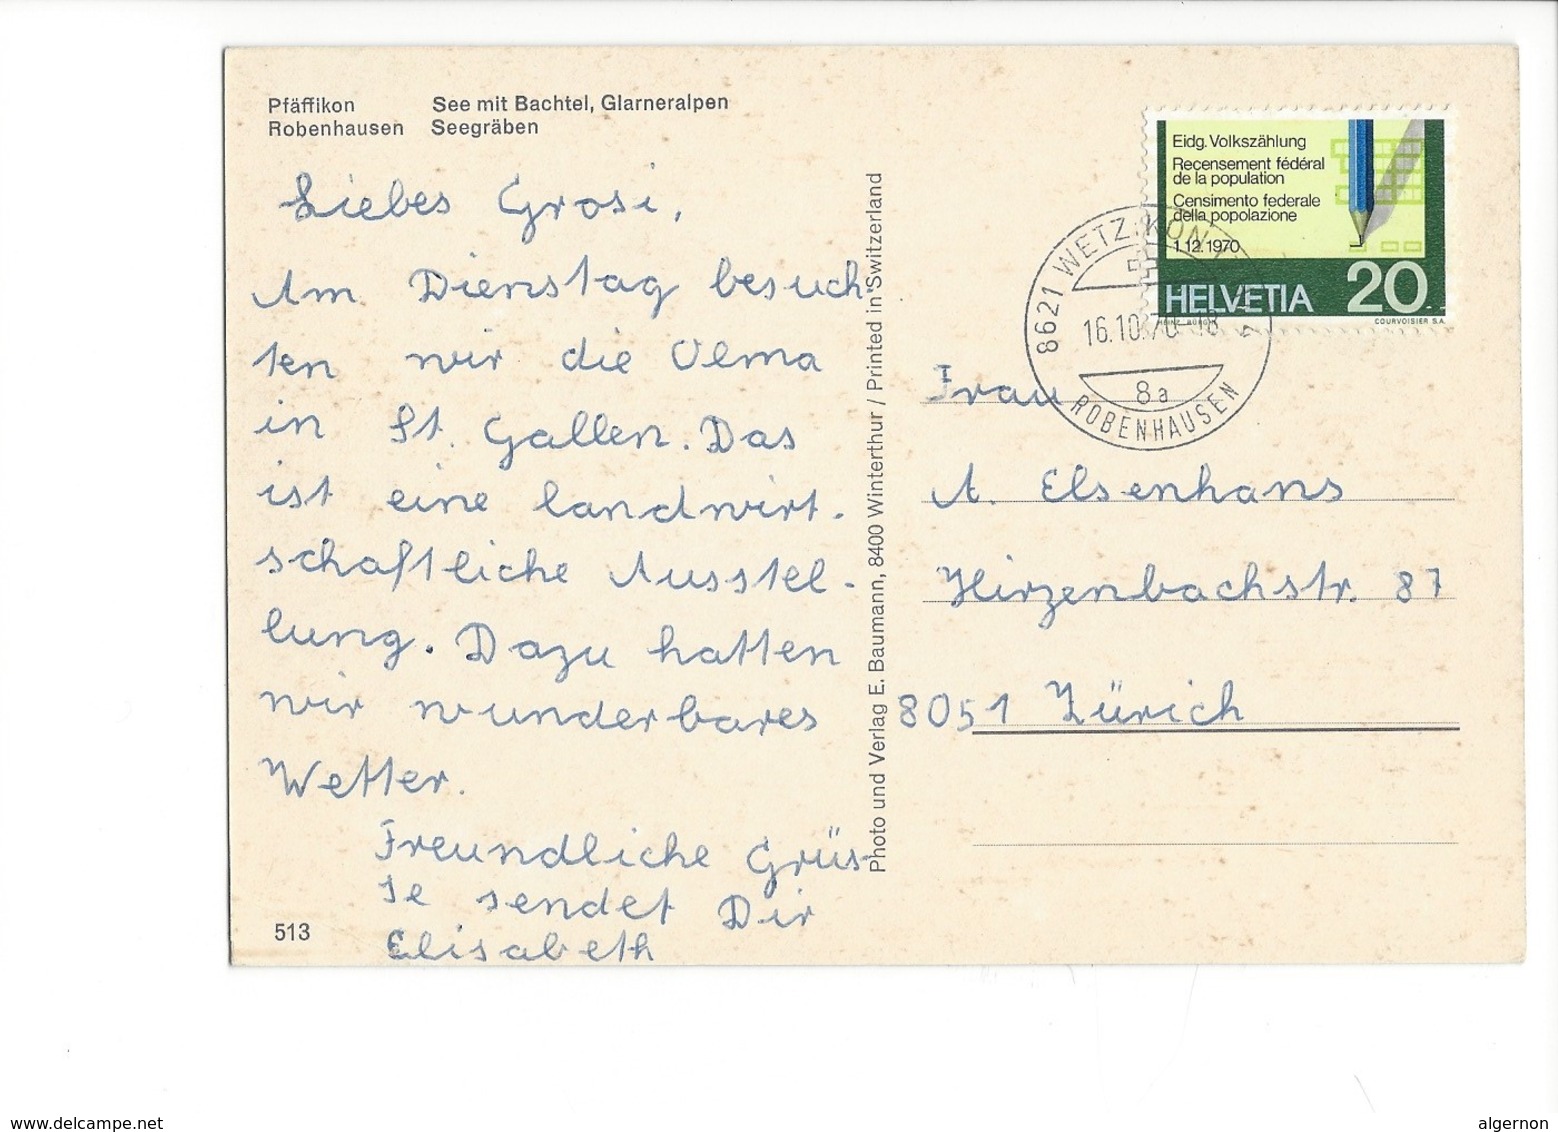 Pfäffikon See mit Bachtel, Glarneralpen
Robenhausen Seegräben
Liebes Grosi,
Am Dienstag besuch-
ten wir die Olma
in St. Gallen. Das
ist eine landwirt-
schaftliche Ausstel-
lung. Dazu hatten
wir wunderbares
Wetter.
Freundliche Grüs-
se sendet Dir
Elisabeth
513
Photo und Verlag E. Baumann, 8400 Winterthur / Printed in Switzerland
Eidg. Volkszählung
Recensement fédéral
de la population
Censimento federale
della popolazione
1.12.1970
HELVETIA 20
COURVOISIER S.A.
8621 WETZIKON
16.10.70-18
8a
ROBENHAUSEN
Frau
A. Elsenhans
Hirzenbachstr. 87
8051 Zürich
www.delcampe.net
algernon